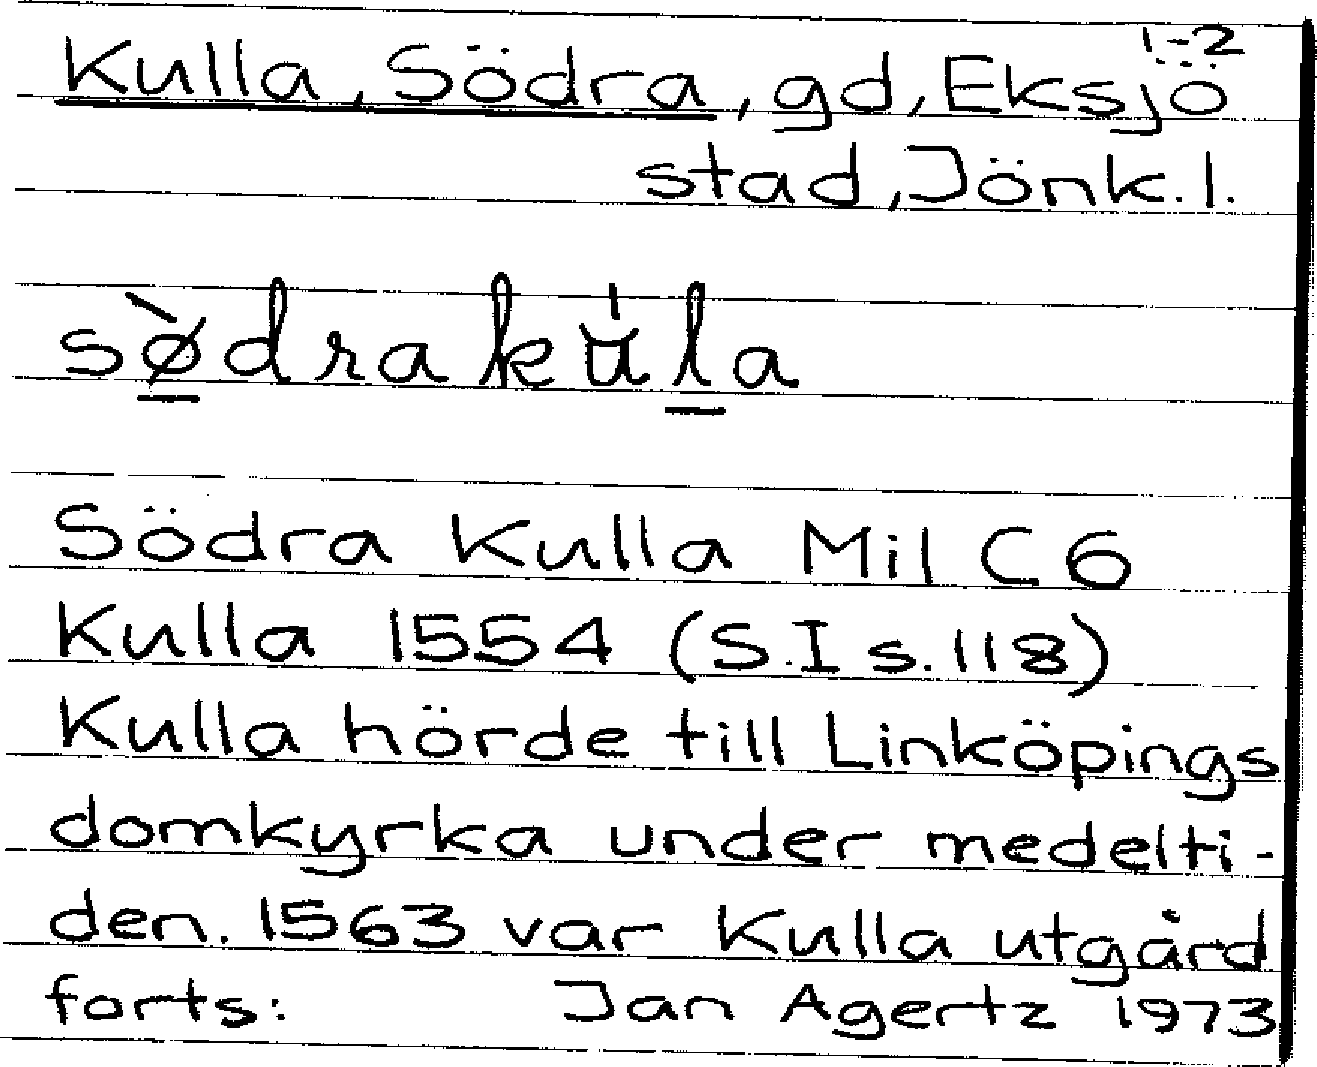 1-2
Kulla, Södra, gd, Eksjö
stad, Jönk. l.
sø̀drakùla
Södra Kulla Mil C6
Kulla 1554 (S.I s. 118)
Kulla hörde till Linköpings
domkyrka under medelti-
den. 1563 var Kulla utgård
forts: Jan Agertz 1973